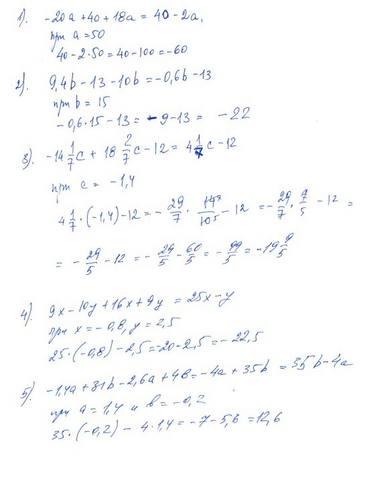 1). -20a + 40 + 18a = 40 - 2a,
при a = 50
40 - 2·50 = 40 - 100 = -60
2). 9,4b - 13 - 10b = -0,6b - 13
при b = 15
-0,6·15 - 13 = -9 - 13 = -22
3). -14 1/7 c + 18 2/7 c - 12 = 4 1/7 c - 12
при c = -1,4
4 1/7 · (-1,4) - 12 = - 29/7 · 14/10 - 12 = - 29/7 · 7/5 - 12 =
= - 29/5 - 12 = - 29/5 - 60/5 = - 99/5 = -19
4). 9x - 10y + 16x + 9y = 25x - y
при x = -0,8, y = 2,5
25·(-0,8) - 2,5 = -20 - 2,5 = -22,5
5). -1,4a + 31b - 2,6a + 4b = -4a + 35b = 35b - 4a
при a = 1,4 и b = -0,2
35·(-0,2) - 4·1,4 = -7 - 5,6 = 12,6